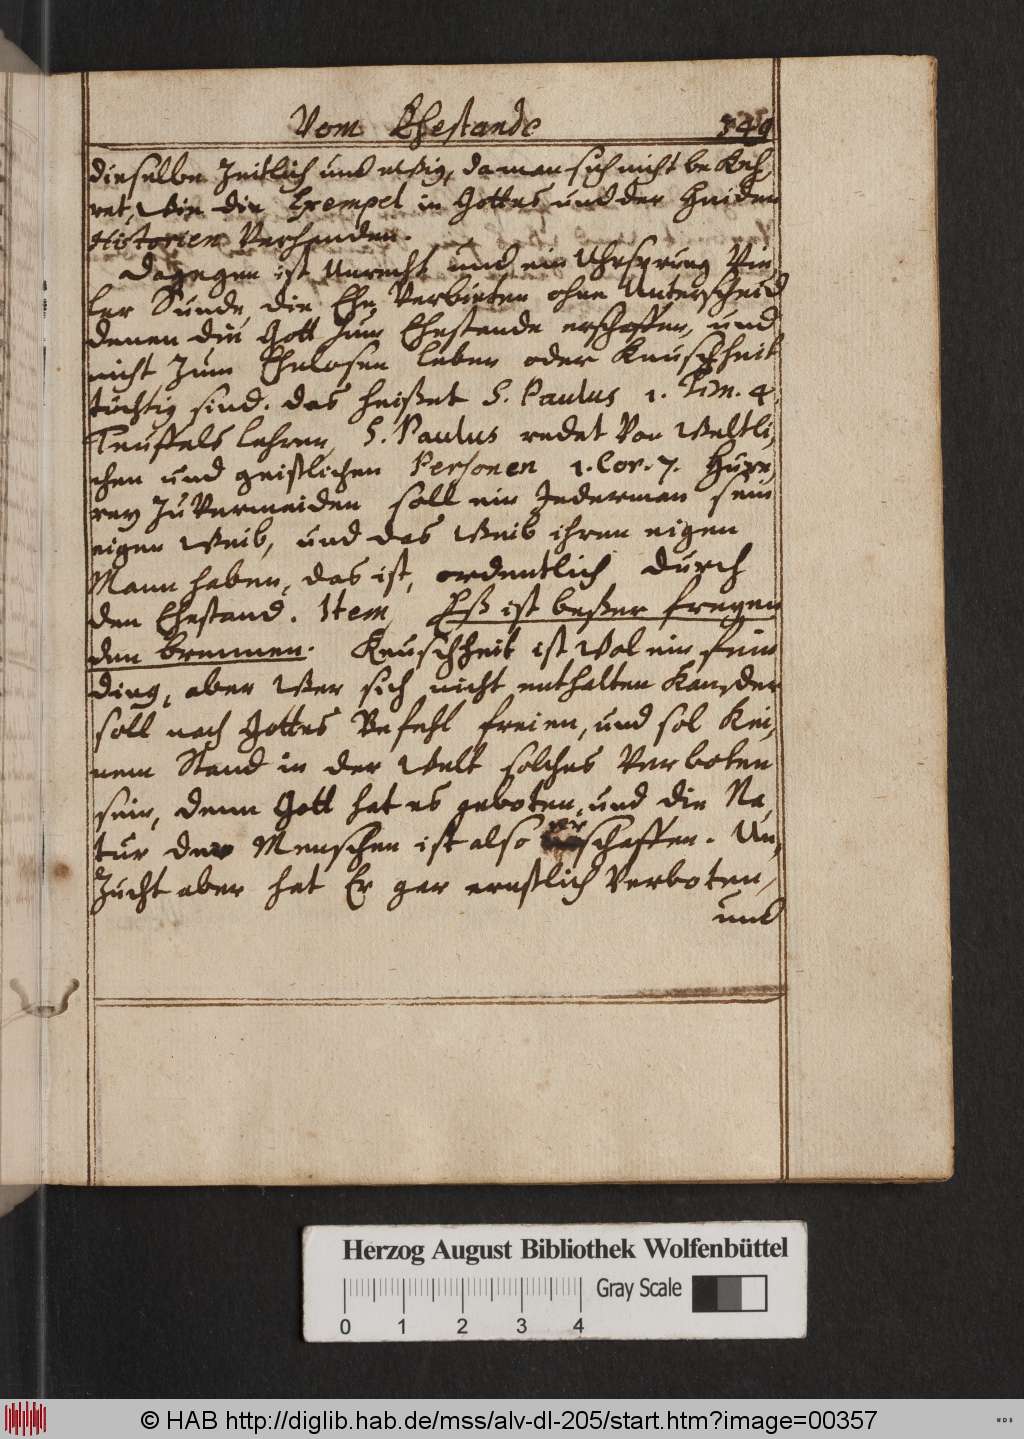 Vom Ehestande 349
dieselbe Zeitlich und ewig, da man sich nicht bekeh,
ret, Wie die Exempel in Gottes und der Heiden
Historien Verhanden.
Dagegen ist Unrecht und ein Uhrsprung Vie
ler Sünde, die Ehe Verbieten ohne Unterscheid
denen die Gott zum Ehestande erschaffen, und
nicht zum Ehelosen leben oder Keuschheit
tüchtig sind. das heißet S. Paulus 1. Tim. 4.
Teuffels lehren, S. Paulus redet Von Weltli,
chen und geistlichen Personen 1. Cor. 7. Hure,
rey zu Vermeiden soll ein Jederman sein
eigen Weib, und das Weib ihren eigen
Mann haben, das ist, ordentlich durch
den Ehestand. Item, Eß ist beßer freyen
den brennen. Keuschheit ist Wol ein fein
ding, aber Wer sich nicht enthalten Kan, der
soll nach Gottes Befehl freien, und sol Kei,
nem Stand in der Welt solches Verboten
sein, denn Gott hat es geboten, und die Na,
tur der Menschen ist also schaffen. Un,
zucht aber hat Er gar ernstlich Verboten,
und
Herzog August Bibliothek Wolfenbüttel
Gray Scale
0 1 2 3 4
© HAB http://diglib.hab.de/mss/alv-dl-205/start.htm?image=00357